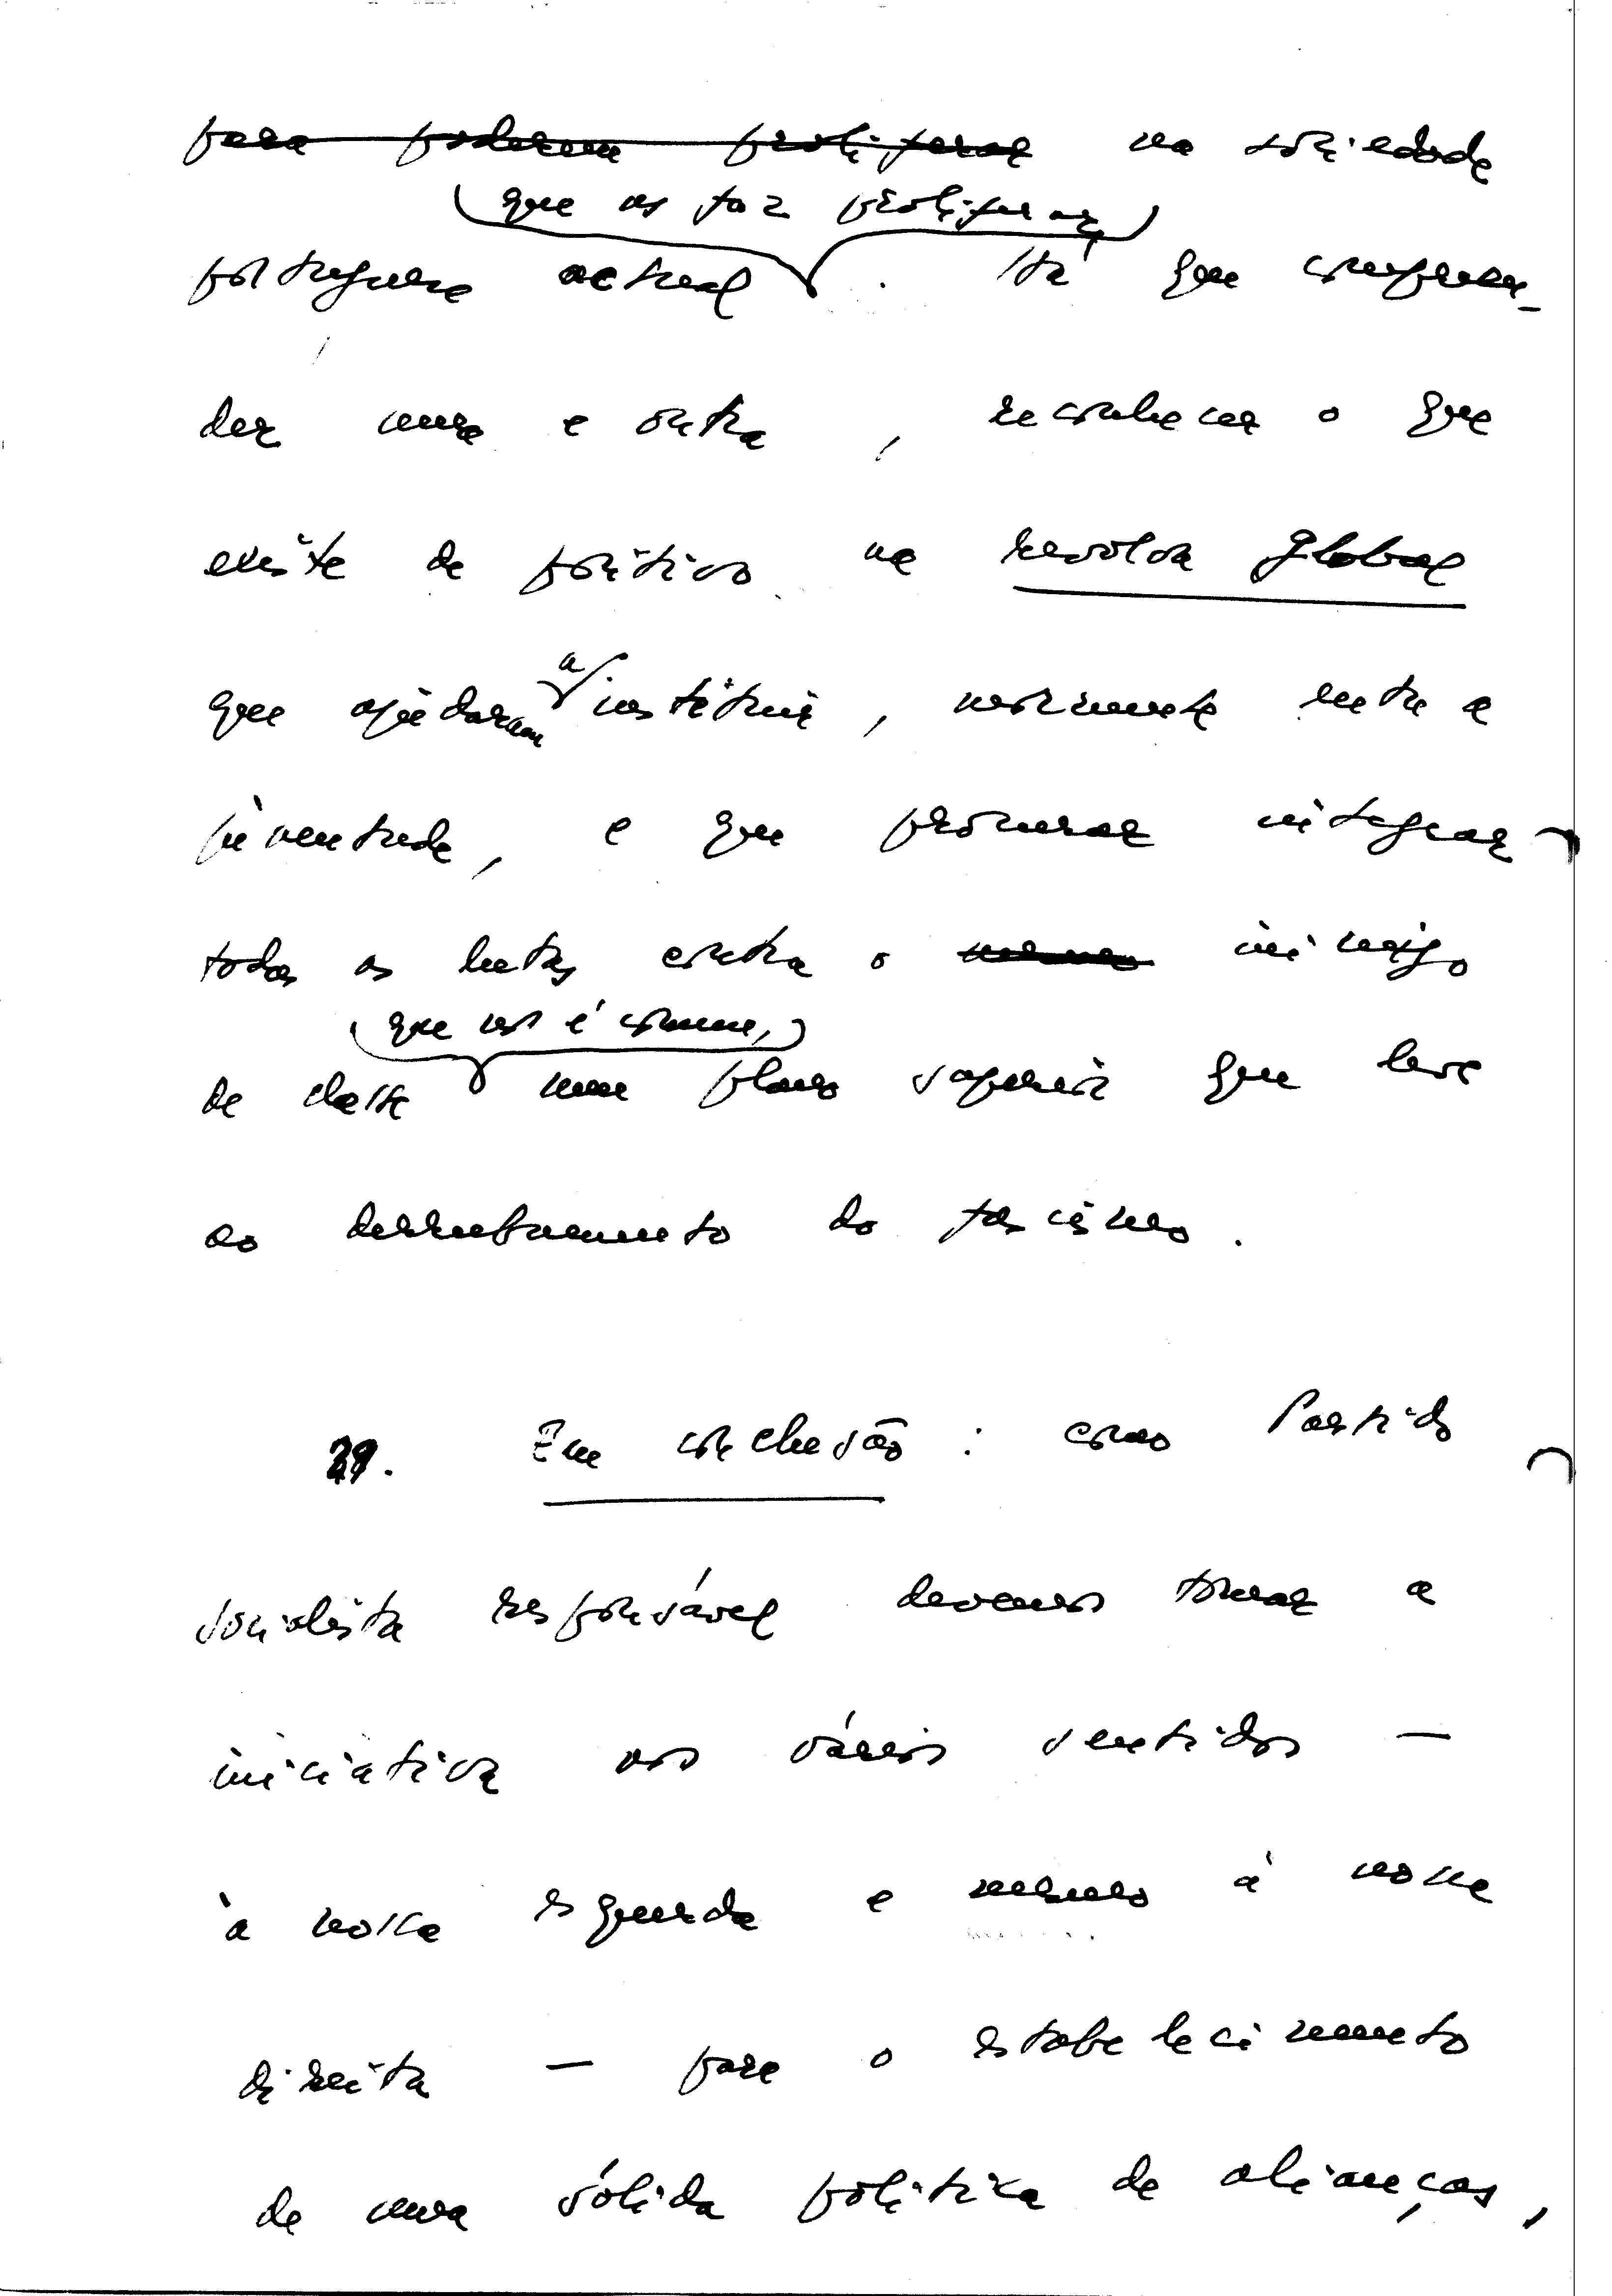 para poderem proliferar na sociedade
que as faz proliferar,
portuguesa actual. Há que compreen-
der uma e outra, reconhecer o que
existe de político na revolta global
a
que ajudaram instituir, mormente entre a
juventude, e que procurar integrar
todas as lutas contra o mesmo inimigo
que nos é comum,
de classe num plano superior que leve
ao derrubamento do fascismo.
29. Em conclusão: como Partido
socialista responsável devemos tomar a
iniciativa nos vários sentidos —
à nossa esquerda e mesmo à nossa
direita — para o estabelecimento
de uma sólida política de alianças,